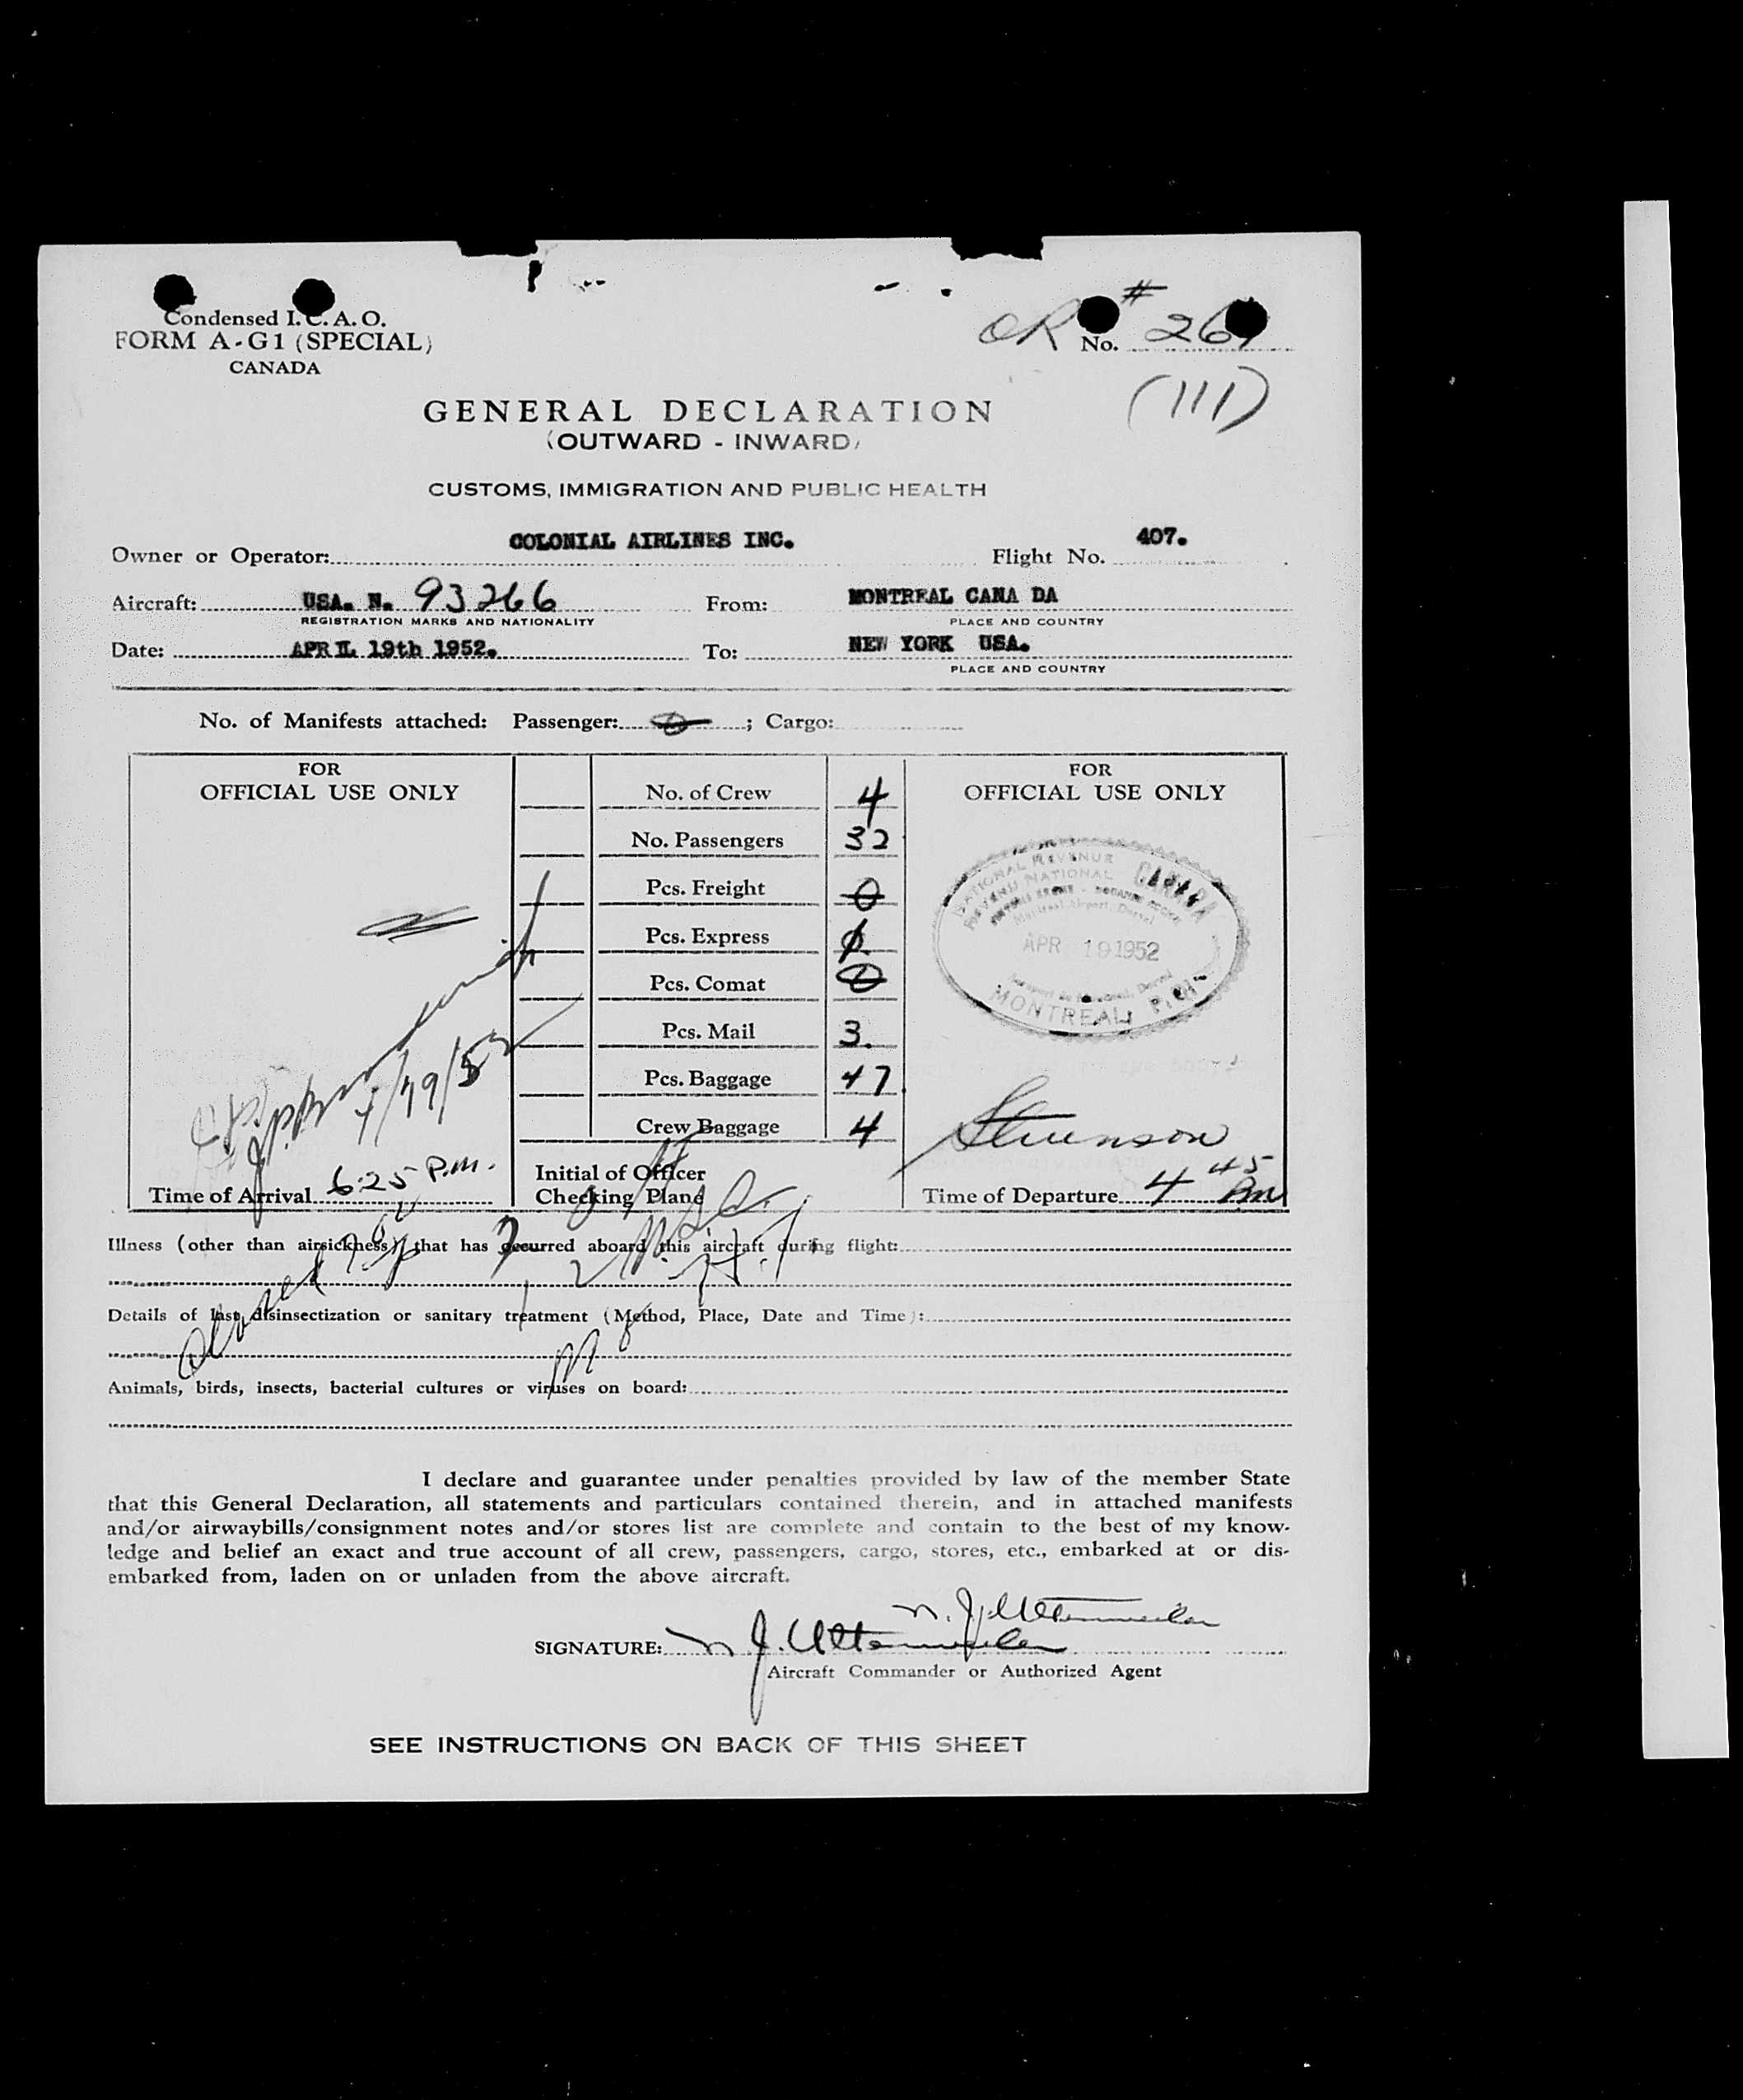 Condensed I.C.A.O.
FORM A-G1 (SPECIAL)
CANADA
OR # No. 26
(111)
GENERAL DECLARATION
(OUTWARD - INWARD)
CUSTOMS, IMMIGRATION AND PUBLIC HEALTH
Owner or Operator: COLONIAL AIRLINES INC. Flight No. 407.
Aircraft: USA. N. 93266 From: MONTREAL CANA DA
REGISTRATION MARKS AND NATIONALITY PLACE AND COUNTRY
Date: APRIL 19th 1952. To: NEW YORK USA.
PLACE AND COUNTRY
No. of Manifests attached: Passenger: 0 ; Cargo:
FOR
OFFICIAL USE ONLY
4/19/52
Time of Arrival 6:25 P.M.
No. of Crew 4
No. Passengers 32
Pcs. Freight 0
Pcs. Express 0
Pcs. Comat 0
Pcs. Mail 3.
Pcs. Baggage 47
Crew Baggage 4
Initial of Officer
Checking Plane
FOR
OFFICIAL USE ONLY
NATIONAL REVENUE
REVENU NATIONAL
CANADA
Montreal Airport, Dorval
APR 19 1952
MONTREAL, P.Q.
Stevenson
Time of Departure 4 45 PM
Illness (other than airsickness) that has occurred aboard this aircraft during flight:
Details of last disinsectization or sanitary treatment (Method, Place, Date and Time):
Animals, birds, insects, bacterial cultures or viruses on board:
I declare and guarantee under penalties provided by law of the member State
that this General Declaration, all statements and particulars contained therein, and in attached manifests
and/or airwaybills/consignment notes and/or stores list are complete and contain to the best of my know-
ledge and belief an exact and true account of all crew, passengers, cargo, stores, etc., embarked at or dis-
embarked from, laden on or unladen from the above aircraft.
SIGNATURE:
Aircraft Commander or Authorized Agent
SEE INSTRUCTIONS ON BACK OF THIS SHEET